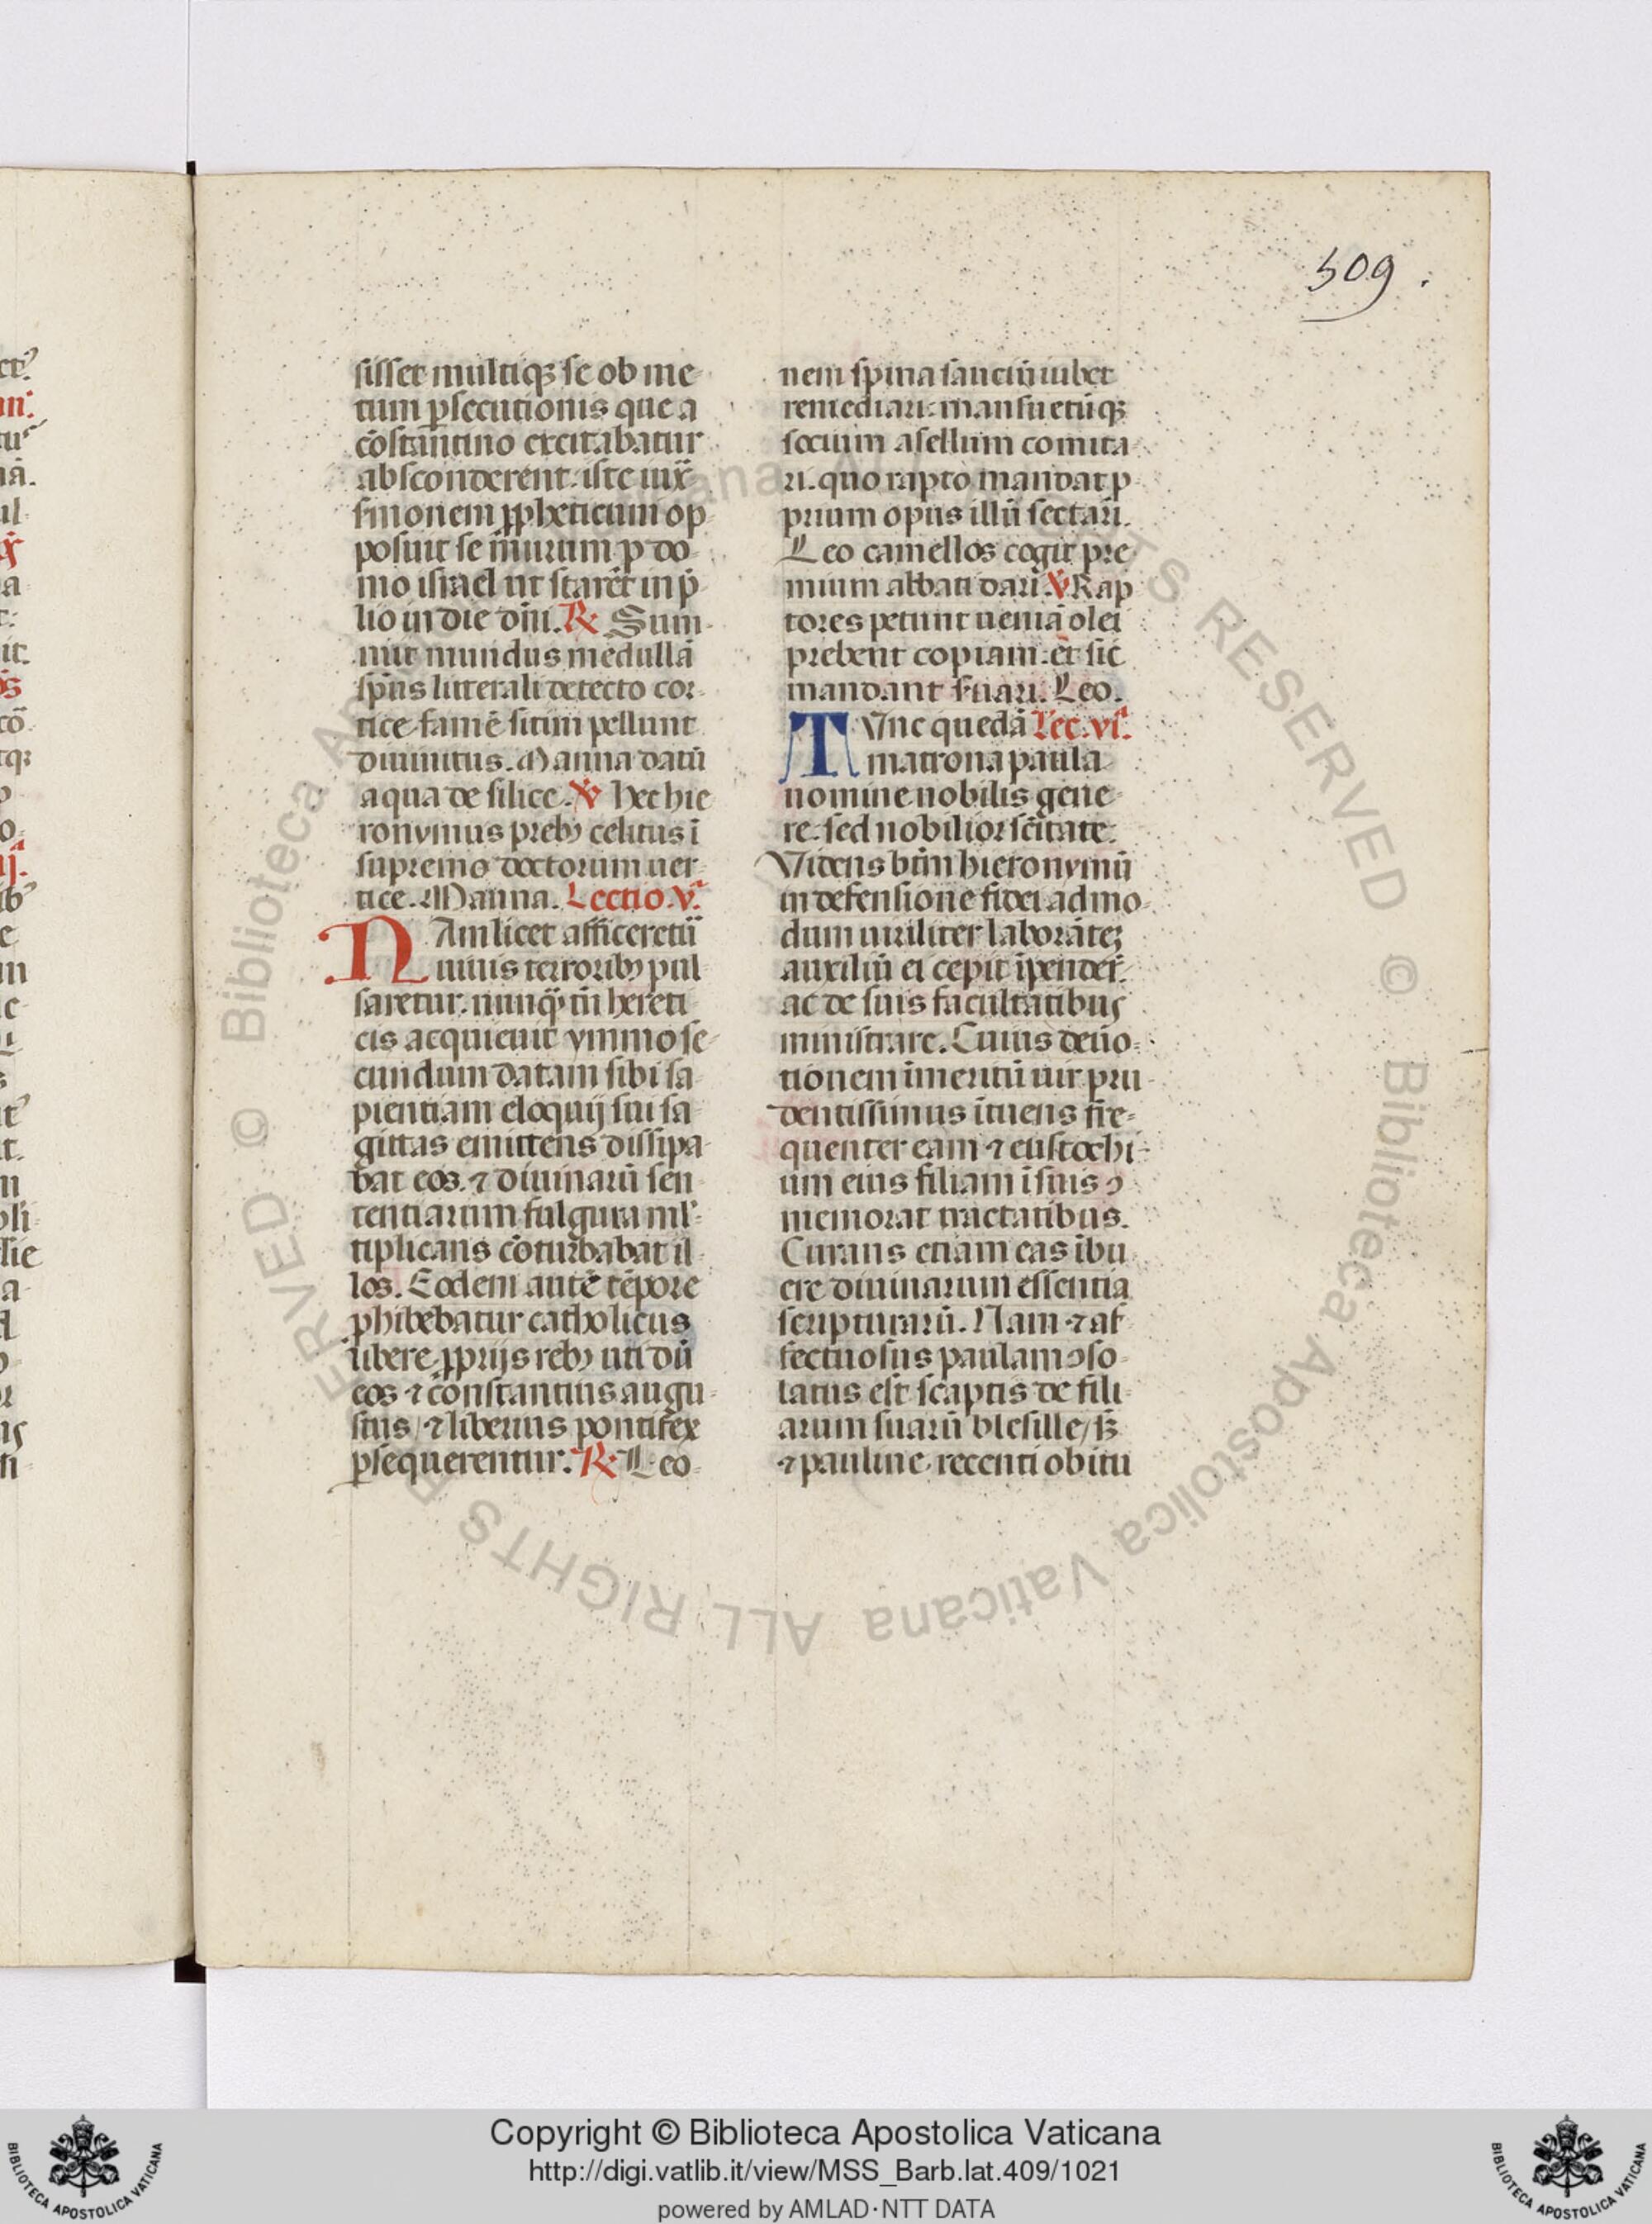 509.
sisset multiqꝫ se ob me
tum ꝑsecutionis que a
cōstantino excitabatur
absconderent. iste iux̄
ẜmonem ꝓpheticum op
posuit se murum p̄ do
mo israel ut staret in p̄
lio in die dn̄i. ℟. Sum
mit mundus medullā
sp̄us litterali detecto cor
tice famē sitim pellunt
diuinitus. Manna datū
aqua de silice. ℣ hec hie
ronymus prebꝫ celitus ī
supremo doctorum uer
tice. Manna. Lectio. vᵃ.
NAm licet afficeretur̄
iniuis terroribꝫ pul
saretur. nunq̄ tn̄ hereti
cis acquieuit ymmo se
cundum datam sibi sa
pientiam eloquij sui sa
gittas emittens dissipa
bat eos. ⁊ diuinarū sen
tentiarum fulgura ml̄
tiplicans cōturbabat il
los. Eodem autē tēpore
ꝓhibebatur catholicus
libere ꝓprijs rebꝫ uti dū
eos ⁊ constantius augu
stus / ⁊ liberius pontifex
ꝑsequerentur. ℟. Leo
nem spina sauciū iubet
remediari: mansuetūqꝫ
socium asellum comita
ri. quo rapto mandat ꝓ
prium opus illū sectari.
Leo camellos cogit pre
mium abbati dari. ℣ Rap
tores petunt ueniā olei
prebent copiam. et sic
mandant ẜuari. Leo.
TVnc quedā Lec. viᵃ.
matrona paula
nomine nobilis gene
re. sed nobilior sc̄itate.
Videns bt̄m hieronymū
in defensione fidei admo
dum uiriliter laborātē
auxiliū ei cepit īpender̄.
ac de suis facultatibus
ministrare. Cuius deuo
tionem īmeritū uir pru
dentissimus ītuens fre
quenter eam ⁊ eustochi
um eius filiam ī suis ꝯ
memorat tractatibus.
Curans etiam eas ību
ere diuinarum essentia
scripturarū. Nam ⁊ af
fectuosus paulam ꝯso
latus est scriptis de fili
arum suarū blesille / sꝫ
⁊ pauline recenti obitu
Copyright © Biblioteca Apostolica Vaticana
http://digi.vatlib.it/view/MSS_Barb.lat.409/1021
powered by AMLAD·NTT DATA